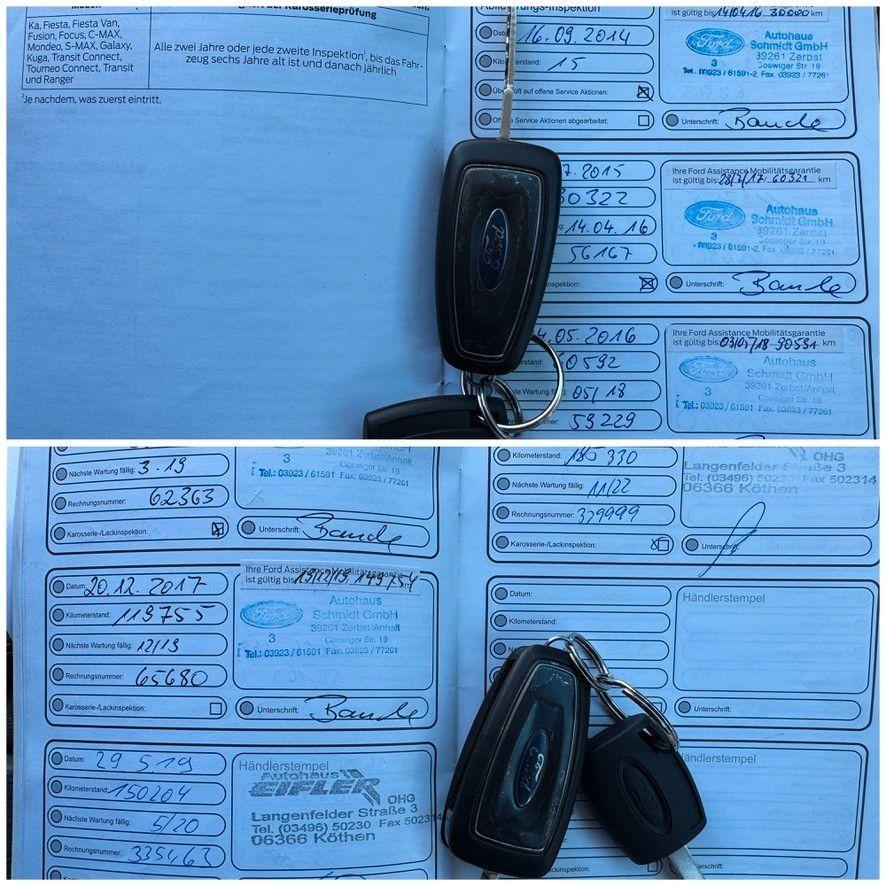 Karosserieprüfung
Ka, Fiesta, Fiesta Van,
Fusion, Focus, C-MAX,
Mondeo, S-MAX, Galaxy,
Kuga, Transit Connect,
Tourneo Connect, Transit
und Ranger
Alle zwei Jahre oder jede zweite Inspektion¹, bis das Fahr-
zeug sechs Jahre alt ist und danach jährlich
¹Je nachdem, was zuerst eintritt.
Inspektion
16.09.2014
Kilometerstand: 15
auf offene Service Aktionen:
Service Aktionen abgearbeitet:
ist gültig bis 14/04/16 30000 km
Ford
Autohaus
Schmidt GmbH
39261 Zerbst
Coswiger Str. 19
Unterschrift: Bande
2015
30322
14.04.16
56167
Inspektion:
Ihre Ford Assistance Mobilitätsgarantie
ist gültig bis 28/7/17 60321 km
Ford
Autohaus
Schmidt GmbH
39261 Zerbst
3
Coswiger Str. 19
Unterschrift: Bande
Ford
.05.2016
60592
Wartung fällig: 05/18
59229
Ihre Ford Assistance Mobilitätsgarantie
ist gültig bis 90591 km
Autohaus
Schmidt GmbH
39261 Zerbst/Anhalt
3
Coswiger Str. 19
Tel.: 03923 / 61591 Fax: 03923 / 77261
Nächste Wartung fällig: 3.19
Rechnungsnummer: 62363
Karosserie-/Lackinspektion:
3
Coswiger Str. 19
Tel.: 03923 / 61591 Fax: 03923 / 77261
Unterschrift: Bande
Datum: 20.12.2017
Kilometerstand: 119755
Nächste Wartung fällig: 12/19
Rechnungsnummer: 65680
Karosserie-/Lackinspektion:
Ihre Ford Assistance Mobilitätsgarantie
ist gültig bis 19/12/19 149754 km
Autohaus
Schmidt GmbH
39261 Zerbst/Anhalt
3
Coswiger Str. 19
Tel.: 03923 / 61591 Fax: 03923 / 77261
Unterschrift: Bande
Datum: 29 5.19
Kilometerstand: 150204
Nächste Wartung fällig: 5/20
Rechnungsnummer: 335463
Händlerstempel
Autohaus
EIFLER OHG
Langenfelder Straße 3
Tel. (03496) 50230 Fax 502314
06366 Köthen
Kilometerstand: 185 330
Nächste Wartung fällig: 11/22
Rechnungsnummer: 379999
Karosserie-/Lackinspektion:
OHG
Langenfelder Straße 3
Tel. (03496) 50230 Fax 502314
06366 Köthen
Unterschrift:
Datum:
Kilometerstand:
Händlerstempel
Unterschrift:
Händlerstempel
Ford